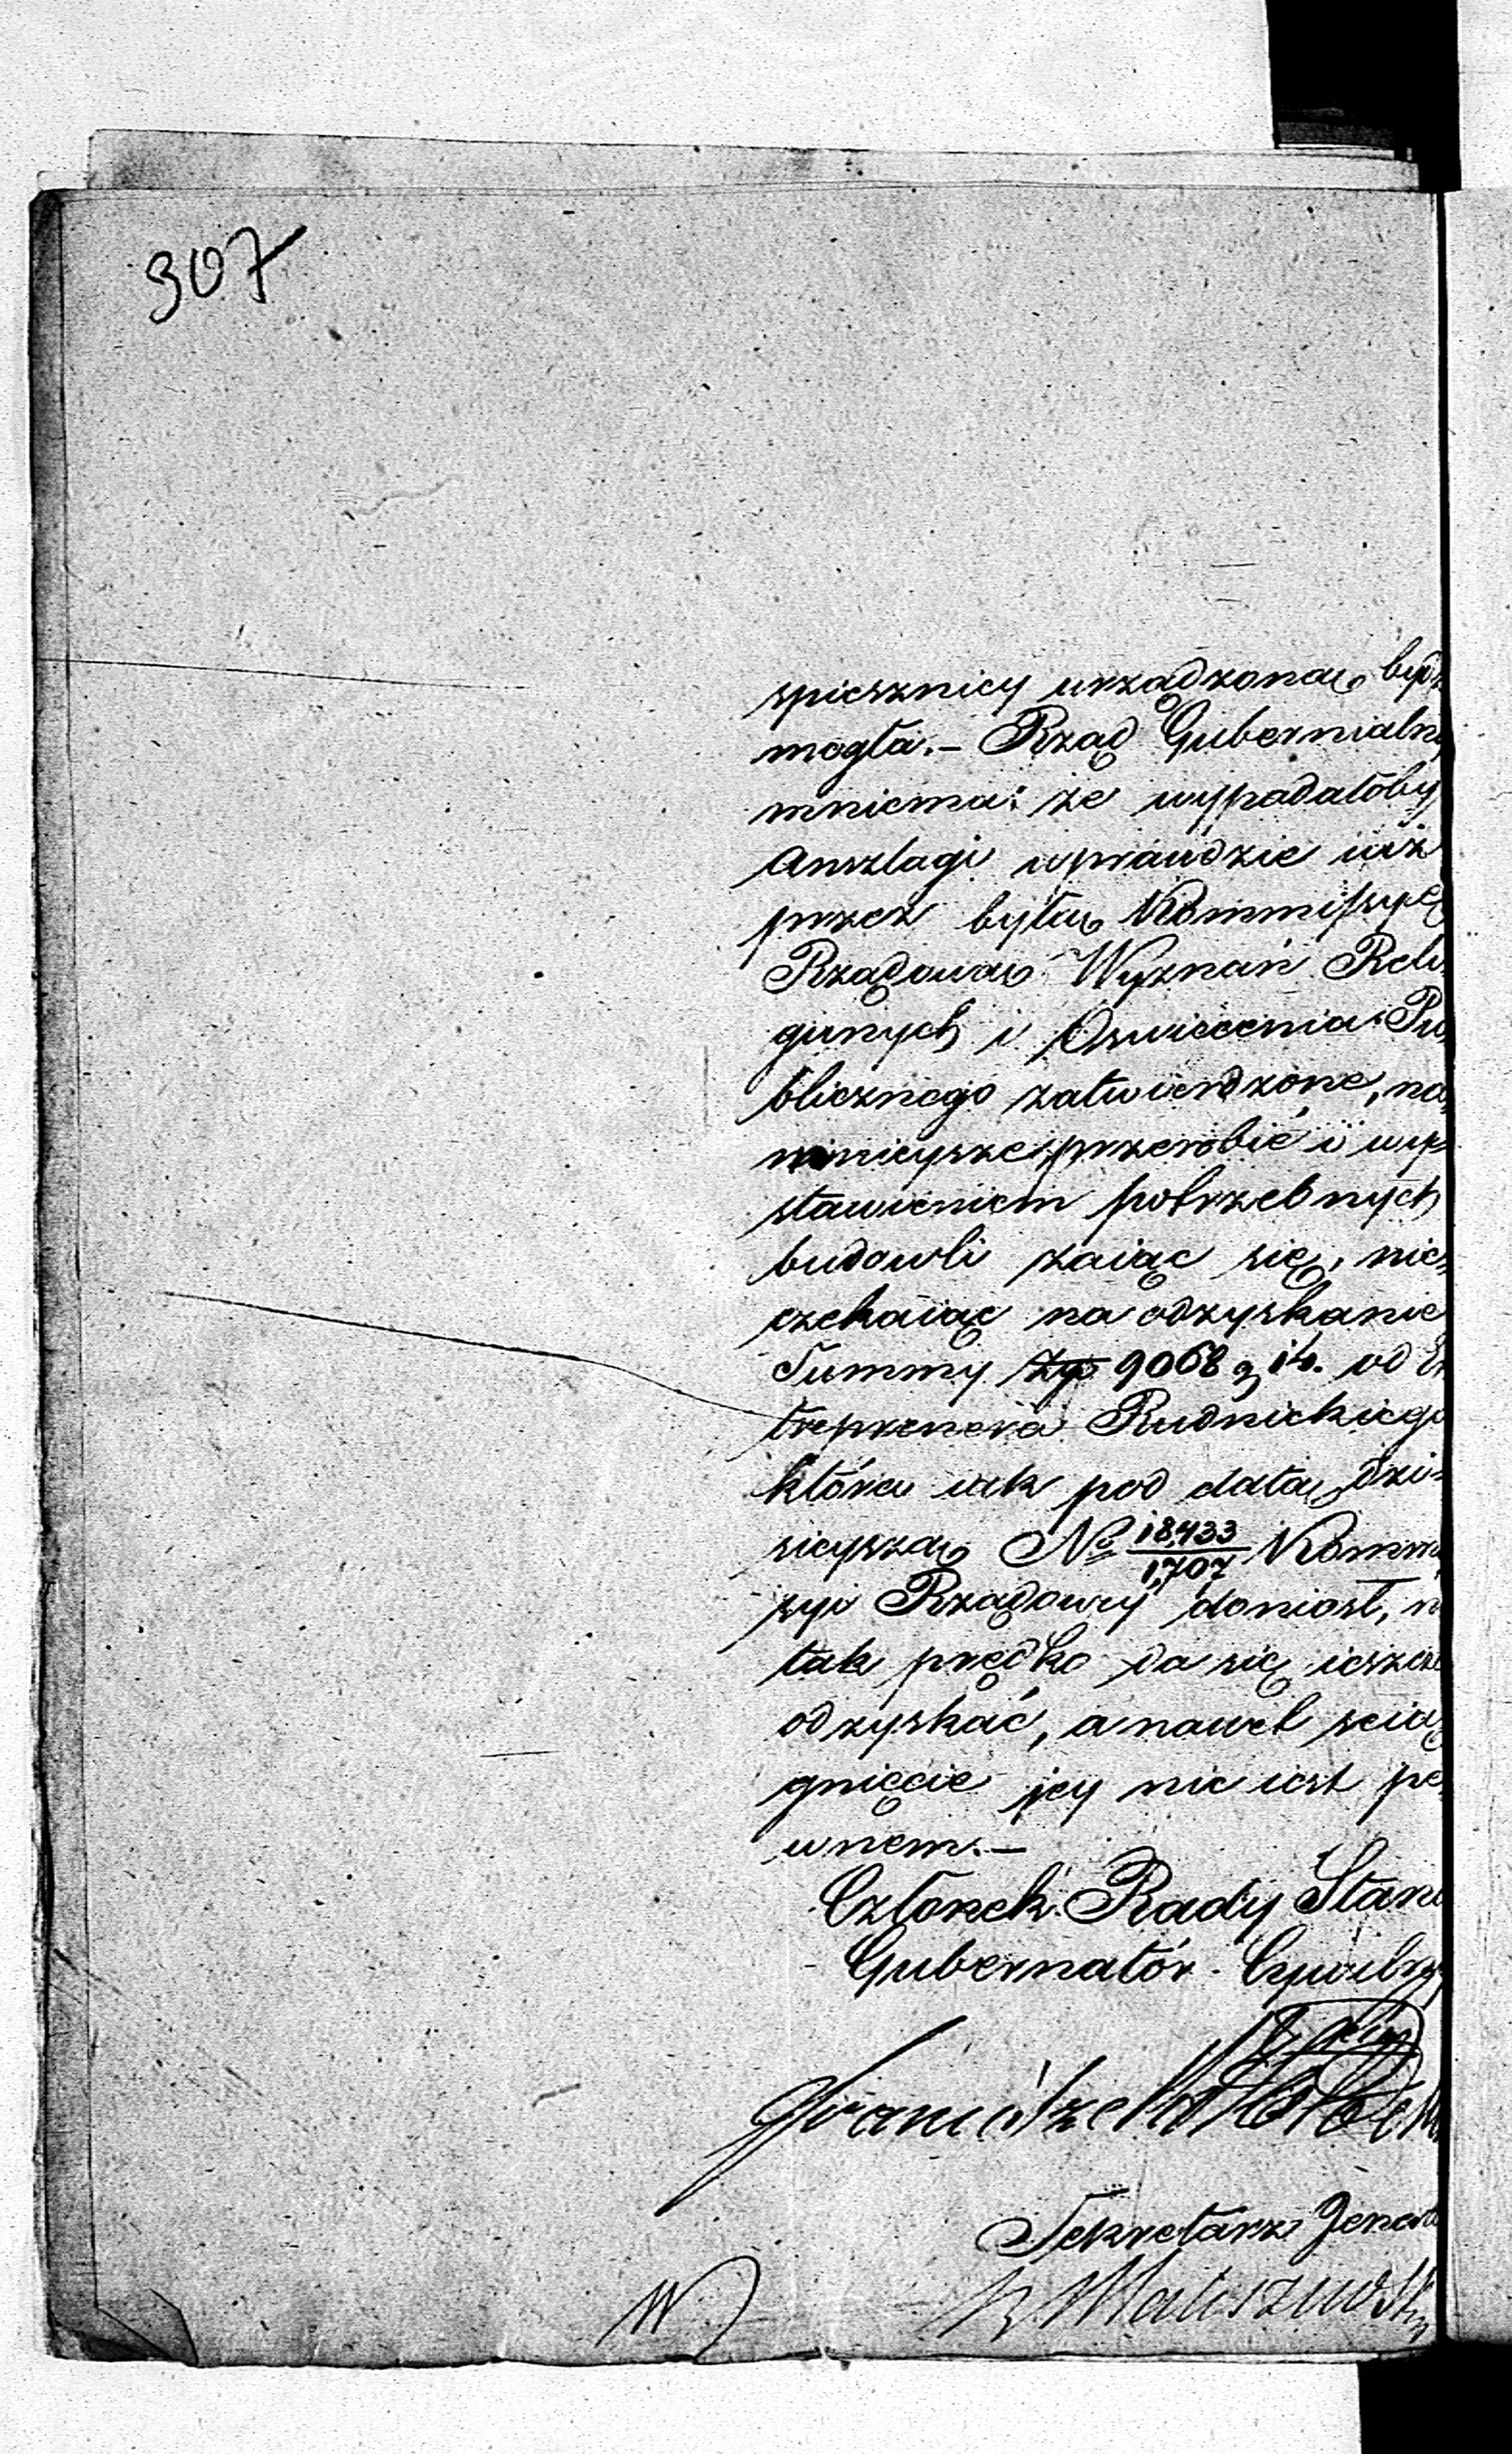 307
spieszniey urządzoną bydź
mogła.— Rząd Gubernialny
mniema: że wypadałoby
Anszlagi wprawdzie iuż
przez byłą Kommissyę
Rządową Wyznań Reli
giinych i Oswiecenia Pu
blicznego zatwierdzone, na
nowo przerobić i wy
stawieniem potrzebnych
budowli zaiąc się, nie
czekaiąc na odzyskanie
Summy Złp 9068 g 14. od En
treprenera Rudnickiego
która iak pod datą dzi
sieyszą No 18,433/1,707 Kommi
syi Rządowey doniosł, n
tak prędko da się ieszcze
odzyskać, a nawet scią
gnięcie jey nie iest pe
wnem.—
Członek Rady Stanu
Gubernator Cywilny
Franciszek
Sekretarz Jenera
Matuszewski